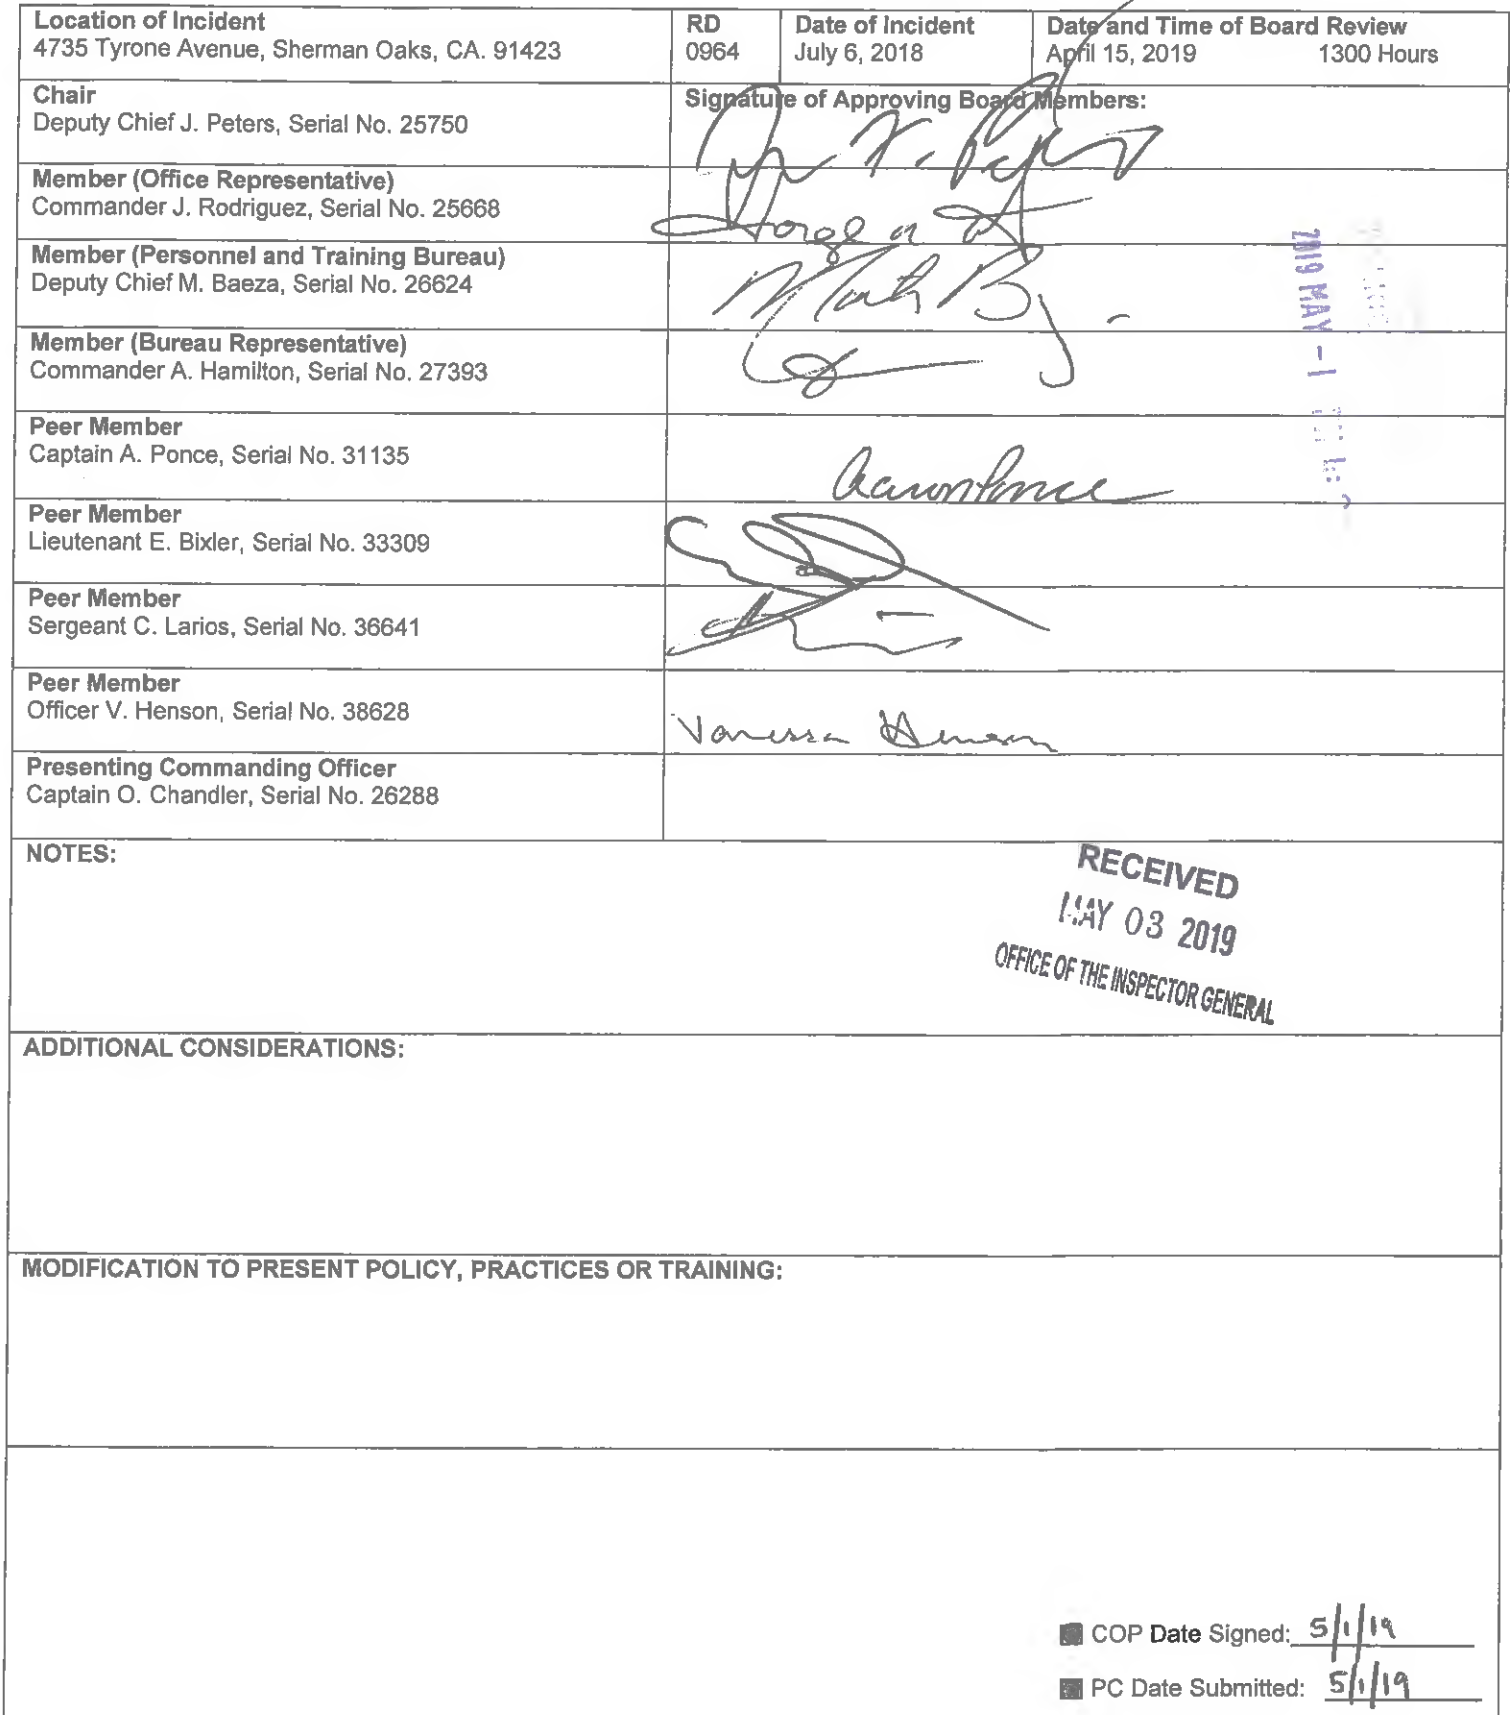 Location of Incident
4735 Tyrone Avenue, Sherman Oaks, CA. 91423
RD
0964
Date of Incident
July 6, 2018
Date and Time of Board Review
April 15, 2019 1300 Hours
Chair
Deputy Chief J. Peters, Serial No. 25750
Signature of Approving Board Members:
Member (Office Representative)
Commander J. Rodriguez, Serial No. 25668
Member (Personnel and Training Bureau)
Deputy Chief M. Baeza, Serial No. 26624
Member (Bureau Representative)
Commander A. Hamilton, Serial No. 27393
2019 MAY -1
Peer Member
Captain A. Ponce, Serial No. 31135
Aaron Ponce
Peer Member
Lieutenant E. Bixler, Serial No. 33309
Peer Member
Sergeant C. Larios, Serial No. 36641
Peer Member
Officer V. Henson, Serial No. 38628
Vanessa Henson
Presenting Commanding Officer
Captain O. Chandler, Serial No. 26288
NOTES:
RECEIVED
MAY 03 2019
OFFICE OF THE INSPECTOR GENERAL
ADDITIONAL CONSIDERATIONS:
MODIFICATION TO PRESENT POLICY, PRACTICES OR TRAINING:
COP Date Signed: 5/1/19
PC Date Submitted: 5/1/19